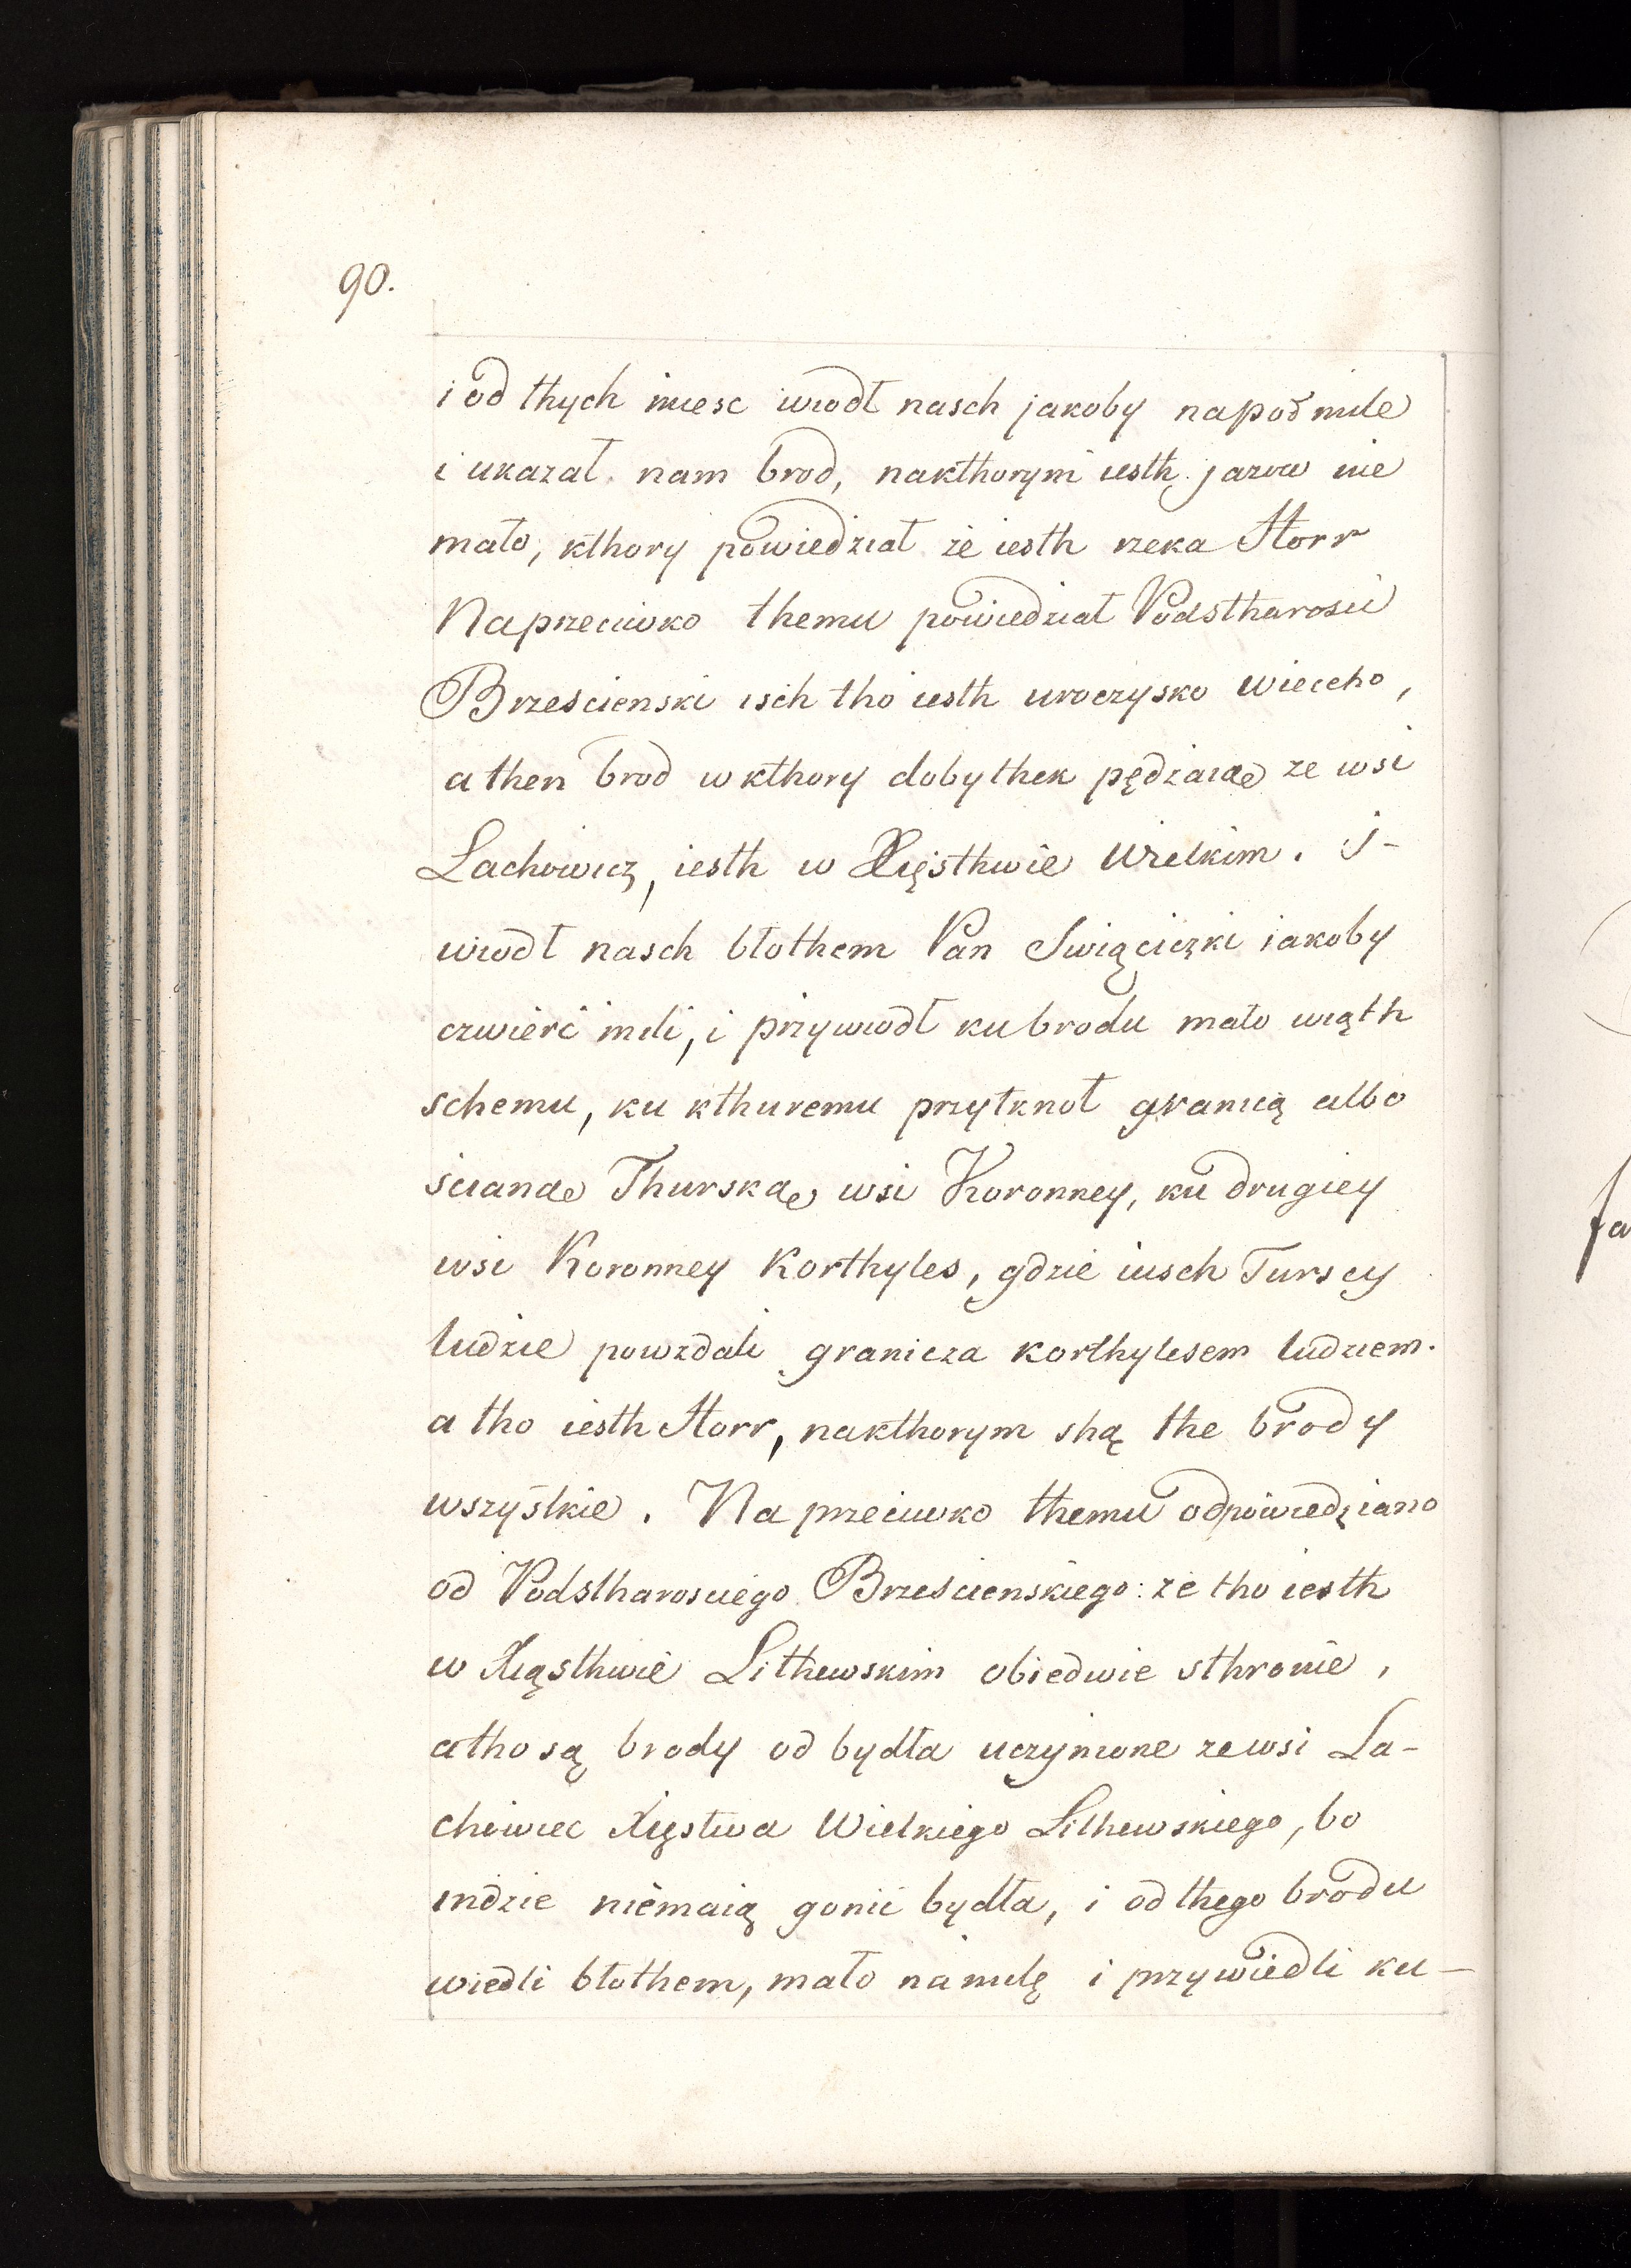 90.
i od thych miesc wiodł nasch jakoby napoł mile
i ukazał nam brod, nakthorym iesth jazow nie
mało, kthory powiedział że iesth rzeka Storr
Naprzeciwko themu powiedział Podstharosci
Brzescienski isch tho iesth uroczysko wieccho,
a then brod w kthory dobythek pędzaią ze wsi
Lachowicz, iesth w Xięsthwie Wielkim. i-
wiodł nasch błothem Pan Swiąciczki iakoby
czwierć mili, i przywiodł ku brodu mało wiąth
schemu, ku kthuremu przytknoł granicą albo
ścianą Thurską wsi Koronney, ku drugiey
wsi Koronney Korthyles, gdzie iusch Turscy
ludzie powzdali granicza korthylesem ludziem.
a tho iesth Storr, nakthorym shą the brody
wszystkie. Na przeciwko themu odpowiedziano
od Podstharosciego Brzescienskiego: że tho iesth
w Xiąsthwie Lithewskim obiedwie sthronie,
atho są brody od bydła uczynione ze wsi La-
chowiec Xięstwa Wielkiego Lithewskiego, bo
indzie niemaią gonić bydła, i od thego brodu
wiedli błothem, mało na milę i przywiedli ku-
fa